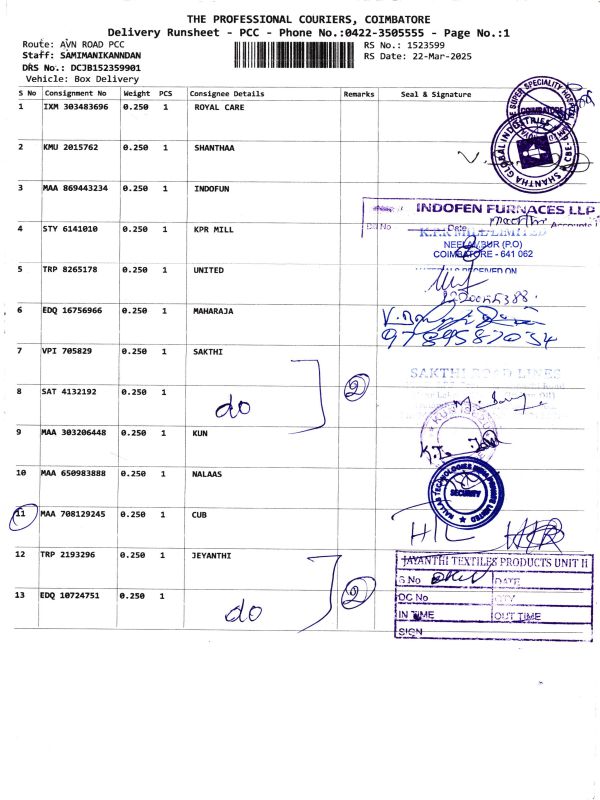 THE PROFESSIONAL COURIERS, COIMBATORE
Delivery Runsheet - PCC - Phone No.:0422-3505555 - Page No.:1
Route: AVN ROAD PCC
RS No.: 1523599
Staff: SAMIMANIKANNDAN
RS Date: 22-Mar-2025
DRS No.: DCJB152359901
Vehicle: Box Delivery
S No Consignment No Weight PCS Consignee Details Remarks Seal & Signature
1 IXM 303483696 0.250 1 ROYAL CARE
COIMBATORE
2 KMU 2015762 0.250 1 SHANTHAA
SHANTHA GLOBAL INDUSTRIES
3 MAA 869443234 0.250 1 INDOFUN
INDOFEN FURNACES LLP
Date
4 STY 6141010 0.250 1 KPR MILL
K.P.R MILL LIMITED
NEELAMBUR (P.O)
COIMBATORE - 641 062
5 TRP 8265178 0.250 1 UNITED
MATERIALS RECEIVED ON
6 EDQ 16756966 0.250 1 MAHARAJA
9789587034
7 VPI 705829 0.250 1 SAKTHI
SAKTHI ROAD LINES
8 SAT 4132192 0.250 1 do 2
9 MAA 303206448 0.250 1 KUN
10 MAA 650983888 0.250 1 NALAAS
SECURITY
11 MAA 708129245 0.250 1 CUB
12 TRP 2193296 0.250 1 JEYANTHI
JAYANTHI TEXTILES PRODUCTS UNIT II
S No DATE
13 EDQ 10724751 0.250 1 do 2
DC No QTY
IN TIME OUT TIME
SIGN